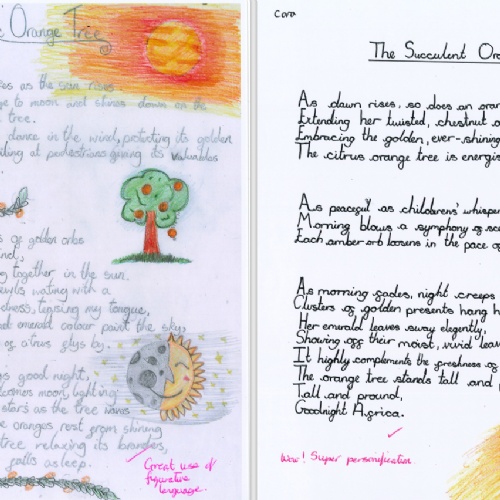 Orange Tree
as the sun rises
to moon and shines down on the
tree.
dance in the wind, protecting its golden
at pedestrians its valuables
golden orbs
together in the sun.
with a
my tongue,
emerald colour paint the sky,
of citrus glys by.
good night,
becomes moon, lighting
stars as the tree waves
oranges rest from shining
tree relaxing its branches,
falls asleep.
Great use of
figurative
language.
Cora
The Succulent Ora
As dawn rises, so does an oran
Extending her twisted, chestnut a
Embracing the golden, ever-shining
The citrus orange tree is energis
As peaceful as childerens' whisper
Morning blows a symphony of sce
Each amber orb loosens in the pace of
As morning fades, night creeps
Clusters of golden presents hang h
Her emerald leaves sway elegently,
Showing off their moist, vivid leave
It highly complements the freshness of
The orange tree stands tall and p
Tall and pround,
Goodnight Africa.
Wow! Super personification.